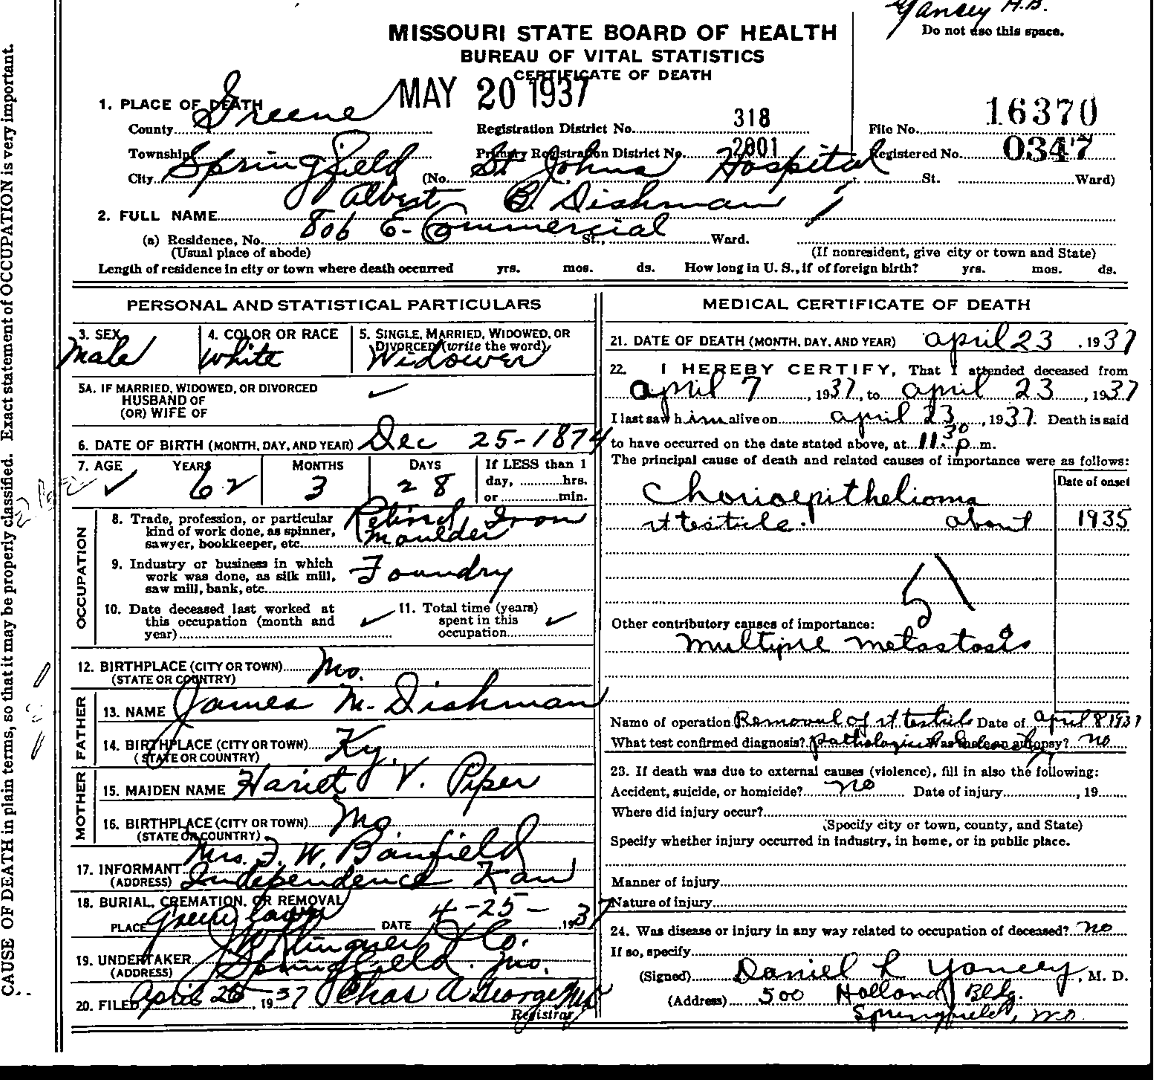 Yancey H.B.
MISSOURI STATE BOARD OF HEALTH
Do not use this space.
BUREAU OF VITAL STATISTICS
CERTIFICATE OF DEATH
MAY 20 1937
1. PLACE OF DEATH
County Greene Registration District No. 318 File No. 16370
Township Primary Registration District No. 2001 Registered No. 0347
City Springfield (No. St Johns Hospital St. Ward)
2. FULL NAME Albert B. Dishman
(a) Residence, No. 806 E. Commercial St., Ward.
(Usual place of abode) (If nonresident, give city or town and State)
Length of residence in city or town where death occurred yrs. mos. ds. How long in U. S., if of foreign birth? yrs. mos. ds.
PERSONAL AND STATISTICAL PARTICULARS
3. SEX Male
4. COLOR OR RACE White
5. SINGLE, MARRIED, WIDOWED, OR DIVORCED (write the word) Widower
5A. IF MARRIED, WIDOWED, OR DIVORCED
HUSBAND OF
(OR) WIFE OF
6. DATE OF BIRTH (MONTH, DAY, AND YEAR) Dec 25-1874
7. AGE YEARS MONTHS DAYS If LESS than 1
62 3 28 day, hrs.
or min.
OCCUPATION
8. Trade, profession, or particular
kind of work done, as spinner,
sawyer, bookkeeper, etc. Retired Iron
Moulder
9. Industry or business in which
work was done, as silk mill,
saw mill, bank, etc. Foundry
10. Date deceased last worked at
this occupation (month and
year)
11. Total time (years)
spent in this
occupation
12. BIRTHPLACE (CITY OR TOWN) Mo.
(STATE OR COUNTRY)
FATHER
13. NAME James M. Dishman
14. BIRTHPLACE (CITY OR TOWN) Ky.
(STATE OR COUNTRY)
MOTHER
15. MAIDEN NAME Hariet V. Piper
16. BIRTHPLACE (CITY OR TOWN) Mo
(STATE OR COUNTRY)
17. INFORMANT Mrs. F. W. Banfield
(ADDRESS) Independence Kan
18. BURIAL, CREMATION, OR REMOVAL
PLACE Green Lawn DATE 4-25-, 1937
19. UNDERTAKER J W Klingner & Co.
(ADDRESS) Springfield, Mo.
20. FILED April 26, 1937 Chas A George MD
Registrar
MEDICAL CERTIFICATE OF DEATH
21. DATE OF DEATH (MONTH, DAY, AND YEAR) april 23, 1937
22. I HEREBY CERTIFY, That I attended deceased from
april 7, 1937, to april 23, 1937
I last saw him alive on april 23, 1937. Death is said
to have occurred on the date stated above, at 11:30 p.m.
The principal cause of death and related causes of importance were as follows:
Date of onset
Chorioepithelioma
rt testicle. about 1935
51
Other contributory causes of importance:
multiple metastosis
Name of operation Removal of rt testicle Date of april 8 1937
What test confirmed diagnosis? pathological Was there an autopsy? no
23. If death was due to external causes (violence), fill in also the following:
Accident, suicide, or homicide? no Date of injury , 19
Where did injury occur?
(Specify city or town, county, and State)
Specify whether injury occurred in industry, in home, or in public place.
Manner of injury
Nature of injury
24. Was disease or injury in any way related to occupation of deceased? no
If so, specify
(Signed) Daniel L Yancey, M. D.
(Address) 500 Holland Bldg.
Springfield, Mo.
CAUSE OF DEATH in plain terms, so that it may be properly classified. Exact statement of OCCUPATION is very important.